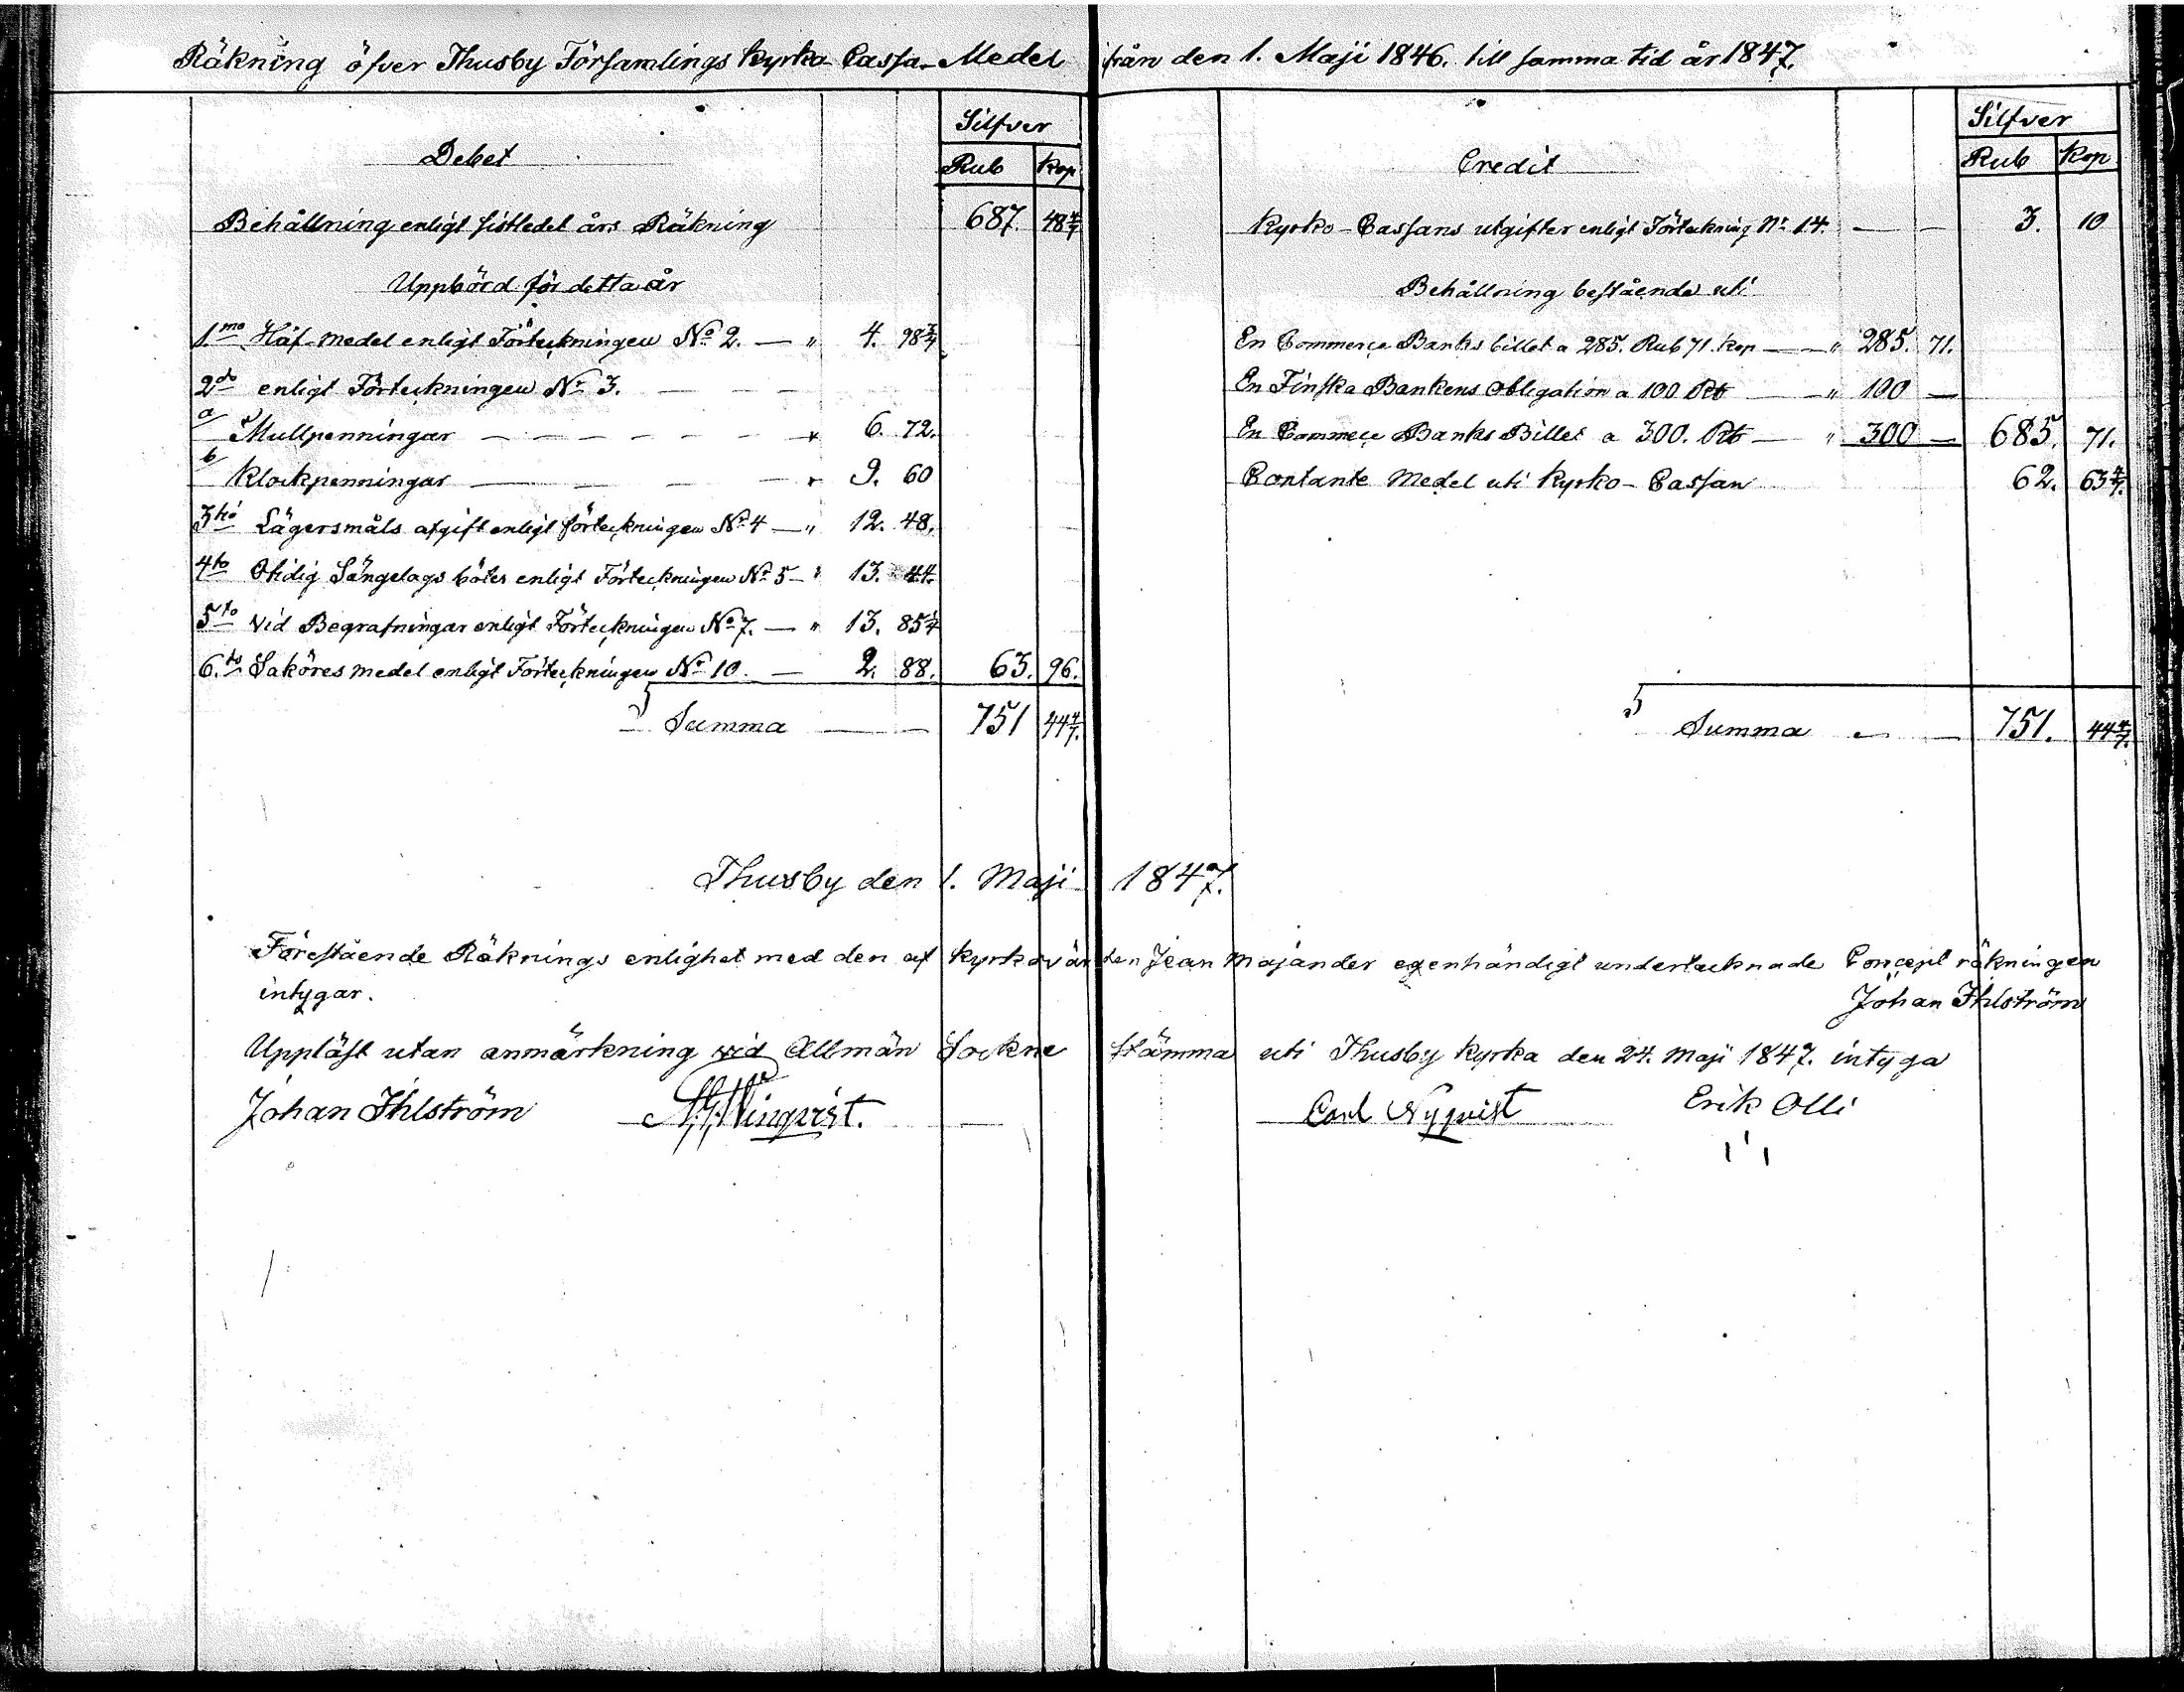 Räkning öfver Thusby Församlings Kyrko Cassa-Medel från den 1. Maji 1846. till samma tid år 1847.
Debet
Silfver
Rub Kop
Behållning enligt sistledet års Räkning 687. 48 4/7
Uppbörd för detta år
1mo Håf-medel enligt Förteckningen No 2. — " 4. 98 3/4
2do enligt Förteckningen No 3.
a Mullpenningar — " 6. 72.
b Klockpenningar — " 9. 60
3tio Lägersmåls afgift enligt förteckningen No 4 — " 12. 48.
4to Otidig Sängelags böter enligt Förteckningen No 5 — " 13. 44.
5to vid Begrafningar enligt Förteckningen No 7. — " 13. 85 1/4
6.to Saköres medel enligt Förteckningen No 10. — 2. 88. 63. 96.
Summa — 751 44 4/7.
Credit
Silfver
Rub Kop
Kyrko-Cassans utgifter enligt Förteckning No 14. — 3. 10
Behållning bestående uti
En Commerce Banks billet a 285. Rub 71. kop — " 285. 71.
En Finska Bankens Obligation a 100 Rb — " 100 —
En Commece Banks Billet a 300. Rb — " 300 — 685. 71.
Contante Medel uti Kyrko-Cassan 62. 63 4/7.
Summa — 751. 44 4/7.
Thusby den 1. Maji 1847.
Förestående Räknings enlighet med den af Kyrkovärden Jean Majander egenhändigt undertecknade Concept räkningen
intygar. Johan Ihlström
Uppläst utan anmärkning vid Allmän Sockne stämma uti Thusby Kyrka den 24. Maji 1847. intyga
Johan Ihlström Winqvist. Carl Nyqvist Erik Olli